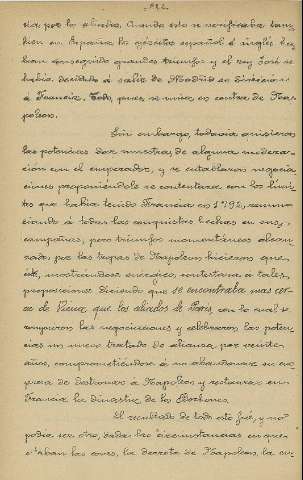 da por los aliados. Cuando esto se verificaba tam-
bien en España los ejércitos español é inglés ha-
bian conseguido grandes triunfos y el rey José se
habia decidido á salir de Madrid en direccion
á Francia. Todo, pues se unia en contra de Na-
poleon.
Sin embargo, todavia quisieron
las potencias dar muestras de alguna modera-
cion con el emperador, y se entablaron negocia-
ciones proponiéndole se contentara con los limi-
tes que habia tenido Francia en 1792, renun-
ciando á todas las conquistas hechas en sus
campañas, pero triunfos momentáneos alcan-
zados por las tropas de Napoleon hicieron que
éste, mostrándose enérgico, contestara á tales
proposiciones diciendo que se encontraba mas cer-
ca de Viena que los aliados de Paris, con lo cual se
rompieron las negociaciones y celebraron las poten-
cias un nuevo tratado de alianza, por veinte
años, comprometiéndose á no abandonar su em-
presa de destronar á Napoleon y restaurar en
Francia la dinastia de los Borbones.
El resultado de todo esto fué, y no
podia ser otro, dadas las circunstancias en que
estaban las cosas, la derrota de Napoleon, la en-